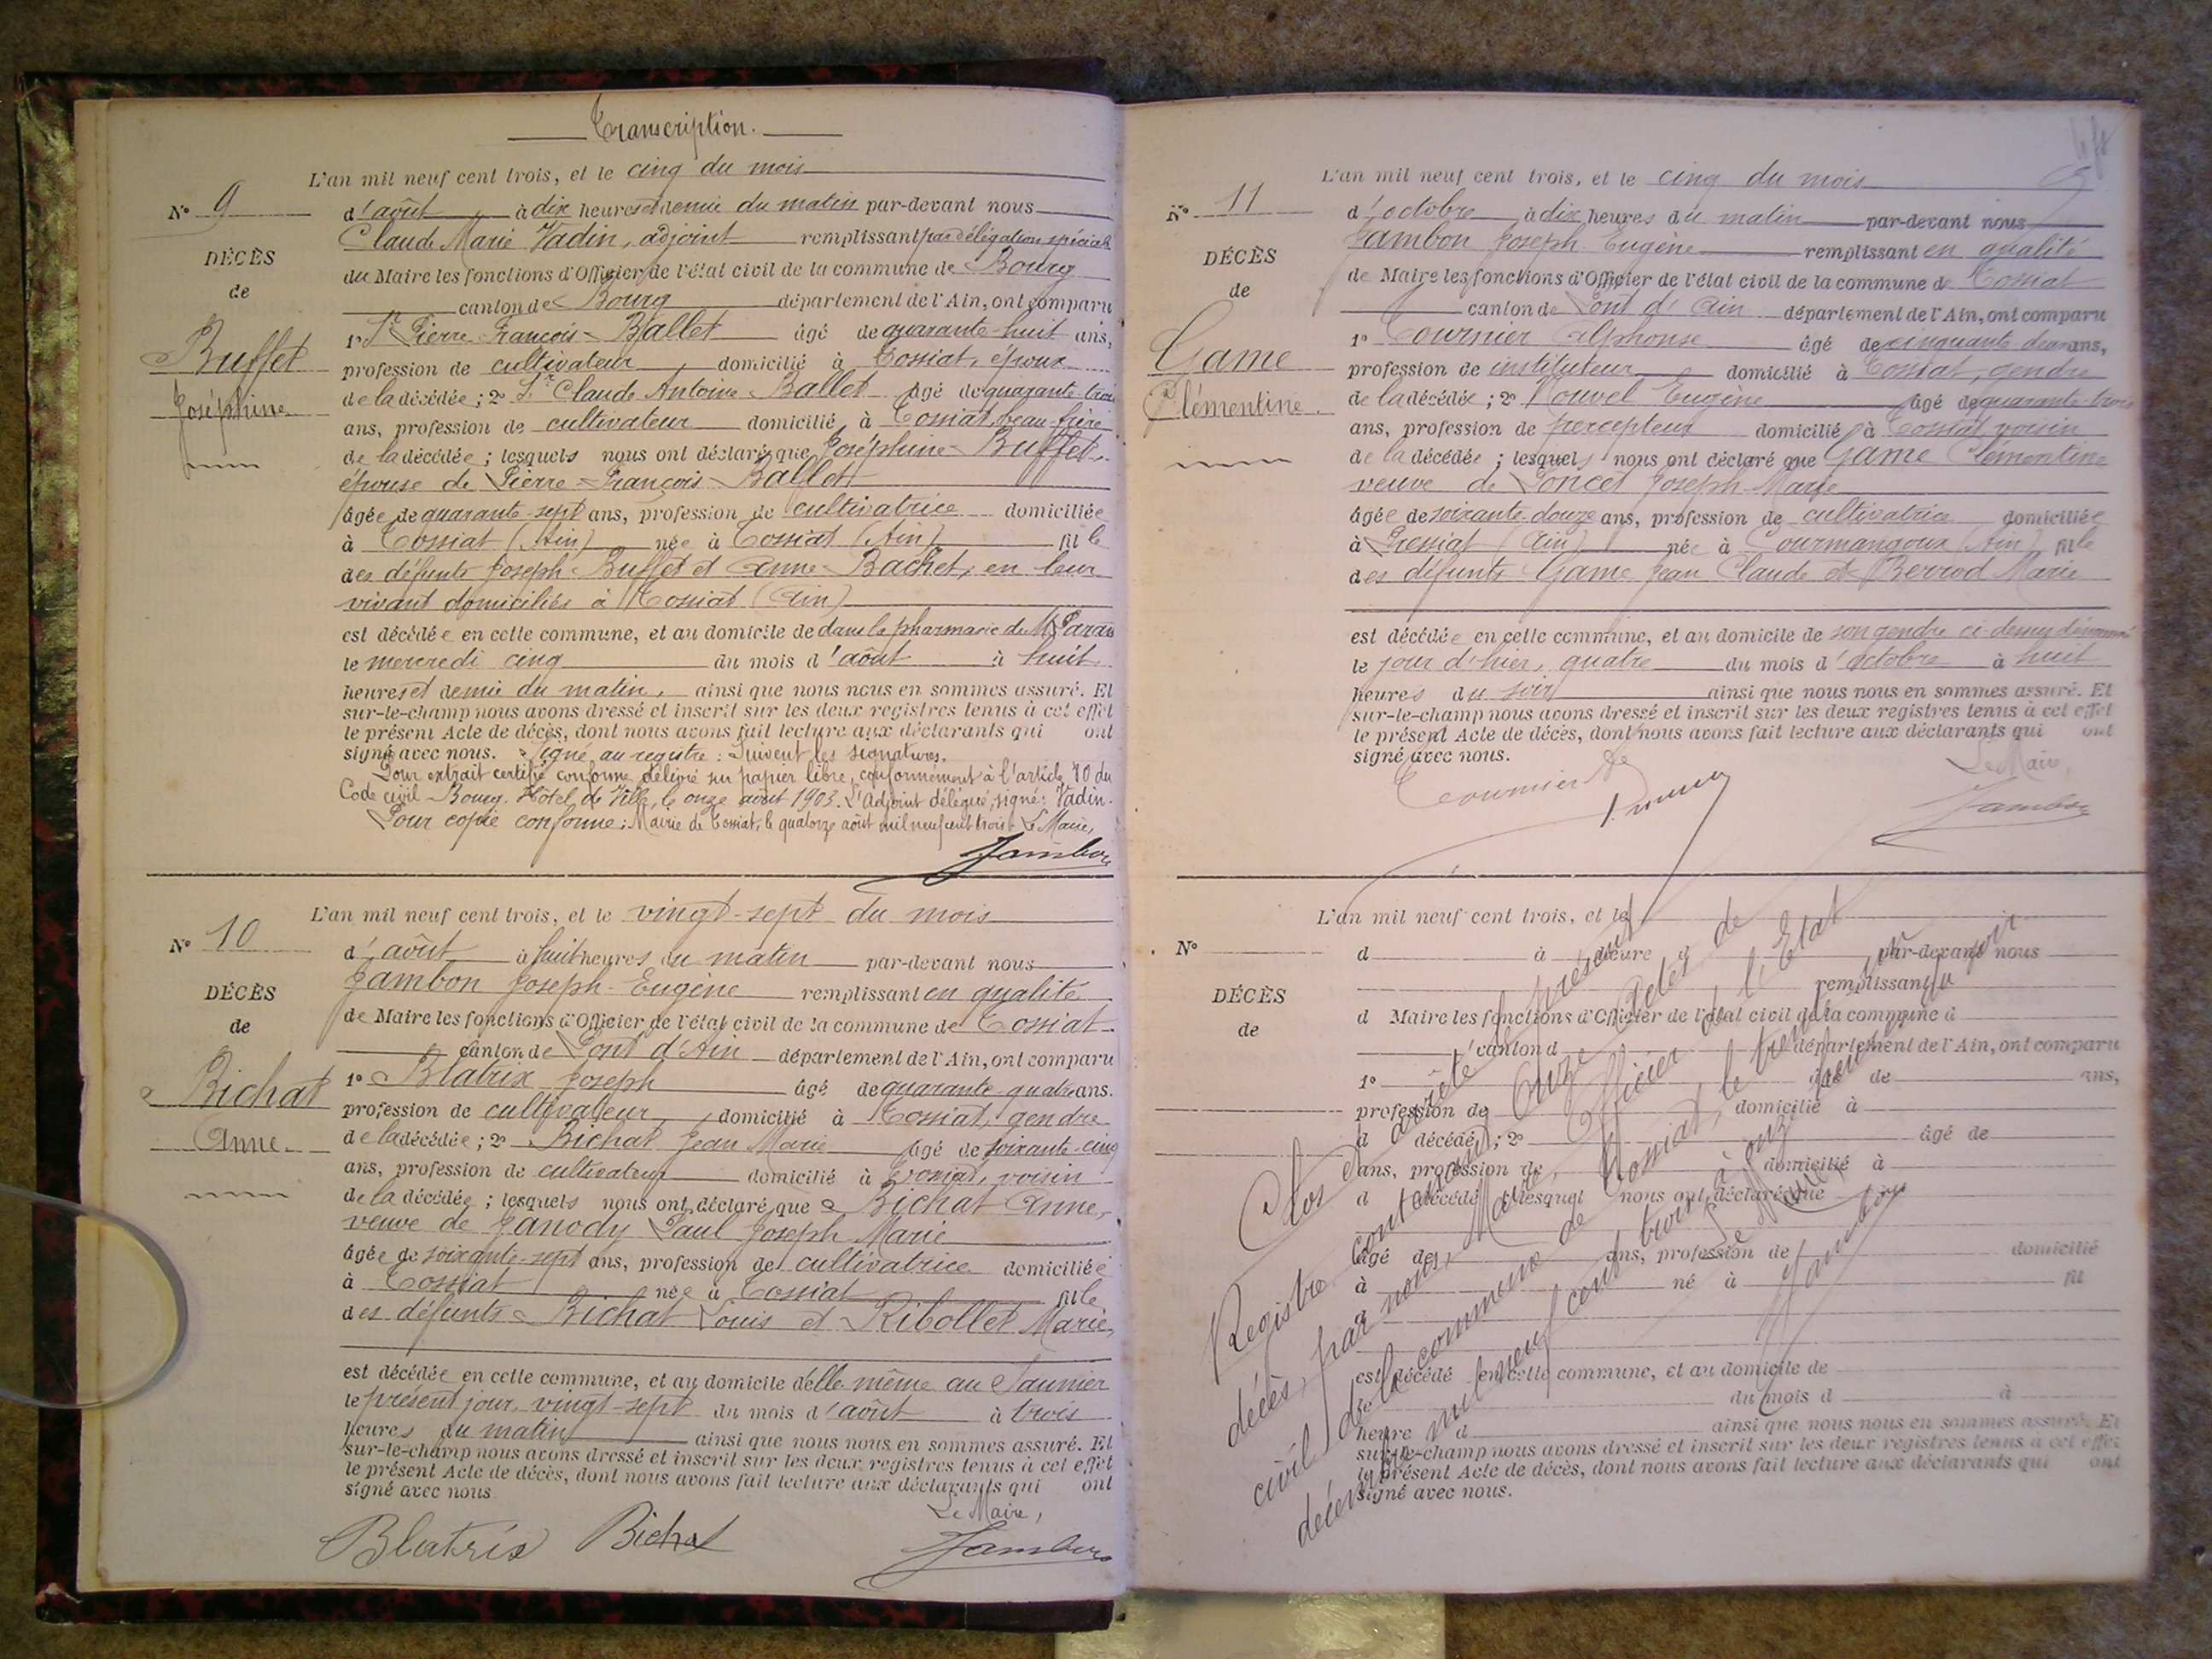 Transcription.
L'an mil neuf cent trois, et le cinq du mois
N° 9
d'août à dix heures et demie du matin par-devant nous
Claude Marie Vadin, adjoint remplissant par délégation spéciale
DÉCÈS
du Maire les fonctions d'Officier de l'état civil de la commune de Bourg
de
canton de Bourg département de l'Ain, ont comparu
Buffet
1° Sr Pierre-François Ballet âgé de quarante-huit ans,
profession de cultivateur domicilié à Tossiat, époux
Joséphine
de la décédée; 2° Sr Claude Antoine Ballet âgé de quarante-trois
ans, profession de cultivateur domicilié à Tossiat, beau-frère
de la décédée; lesquels nous ont déclaré que Joséphine Buffet,
épouse de Pierre-François Ballet
âgée de quarante-sept ans, profession de cultivatrice domiciliée
à Tossiat (Ain) née à Tossiat (Ain) fille
des défunts Joseph Buffet et Anne Bachet, en leur
vivant domiciliés à Tossiat (Ain)
est décédée en cette commune, et au domicile de dans la pharmacie de Mr
le mercredi cinq du mois d'août à huit
heures et demie du matin, ainsi que nous nous en sommes assuré. Et
sur-le-champ nous avons dressé et inscrit sur les deux registres tenus à cet effet
le présent Acte de décès, dont nous avons fait lecture aux déclarants qui ont
signé avec nous. Signé au registre: Suivent les signatures.
Pour extrait certifié conforme délivré sur papier libre, conformément à l'article 80 du
Code civil Bourg, Hôtel de Ville, le onze août 1903. L'Adjoint délégué, signé: Vadin.
Pour copie conforme: Mairie de Tossiat, le quatorze août mil neuf cent trois. Le Maire,
Jambon
L'an mil neuf cent trois, et le vingt-sept du mois
N° 10
d'août à huit heures du matin par-devant nous
Jambon Joseph-Eugène remplissant en qualité
DÉCÈS
de Maire les fonctions d'Officier de l'état civil de la commune de Tossiat
de
canton de Pont d'Ain département de l'Ain, ont comparu
Bichat
1° Blatrix Joseph âgé de quarante-quatre ans.
profession de cultivateur domicilié à Tossiat, gendre
Anne
de la décédée; 2° Bichat Jean Marie âgé de soixante-cinq
ans, profession de cultivateur domicilié à Tossiat, voisin
de la décédée; lesquels nous ont déclaré que Bichat Anne,
veuve de Janody Paul Joseph Marie
âgée de soixante-sept ans, profession de cultivatrice domiciliée
à Tossiat née à Tossiat fille
des défunts Bichat Louis et Ribollet Marie,
est décédée en cette commune, et au domicile d'elle-même au Saunier
le présent jour, vingt-sept du mois d'août à trois
heures du matin ainsi que nous nous en sommes assuré. Et
sur-le-champ nous avons dressé et inscrit sur les deux registres tenus à cet effet
le présent Acte de décès, dont nous avons fait lecture aux déclarants qui ont
signé avec nous
Le Maire,
Blatrix Bichat Jambon
L'an mil neuf cent trois, et le cinq du mois
N° 11
d'octobre à dix heures du matin par-devant nous
Jambon Joseph-Eugène remplissant en qualité
DÉCÈS
de Maire les fonctions d'Officier de l'état civil de la commune de Tossiat
de
canton de Pont d'Ain département de l'Ain, ont comparu
Game
1° Tournier Alphonse âgé de cinquante-deux ans,
profession de instituteur domicilié à Tossiat, gendre
Clémentine
de la décédée; 2° Nouvel Eugène âgé de quarante-trois
ans, profession de percepteur domicilié à Tossiat, voisin
de la décédée; lesquels nous ont déclaré que Game Clémentine
veuve de Poncet Joseph-Marie
âgée de soixante-douze ans, profession de cultivatrice domiciliée
à Pressiat (Ain) née à Courmangoux (Ain) fille
des défunts Game Jean Claude et Berrod Marie
est décédée en cette commune, et au domicile de son gendre ci-dessus dénommé
le jour d'hier, quatre du mois d'octobre à huit
heures du soir ainsi que nous nous en sommes assuré. Et
sur-le-champ nous avons dressé et inscrit sur les deux registres tenus à cet effet
le présent Acte de décès, dont nous avons fait lecture aux déclarants qui ont
signé avec nous.
Le Maire,
Tournier
Jambon
L'an mil neuf cent trois, et le
N°
d à heure d par-devant nous
remplissant
DÉCÈS
d Maire les fonctions d'Officier de l'état civil de la commune d
de
canton d département de l'Ain, ont comparu
1° âgé de ans,
profession de domicilié à
d décédé; 2° âgé de
ans, profession de domicilié à
d décédé; lesquel nous ont déclaré que
âgé de ans, profession de domicilié
à né à fil
d
est décédé en cette commune, et au domicile de
le du mois d à
heure d ainsi que nous nous en sommes assuré. Et
sur-le-champ nous avons dressé et inscrit sur les deux registres tenus à cet effet
le présent Acte de décès, dont nous avons fait lecture aux déclarants qui ont
signé avec nous.
Clos et arrêté le présent
Registre contenant Onze Actes de
décès, par nous, Maire, Officier de l'Etat
civil de la commune de Tossiat, le
décembre mil neuf cent trois à onze heures du soir
Le Maire,
Jambon